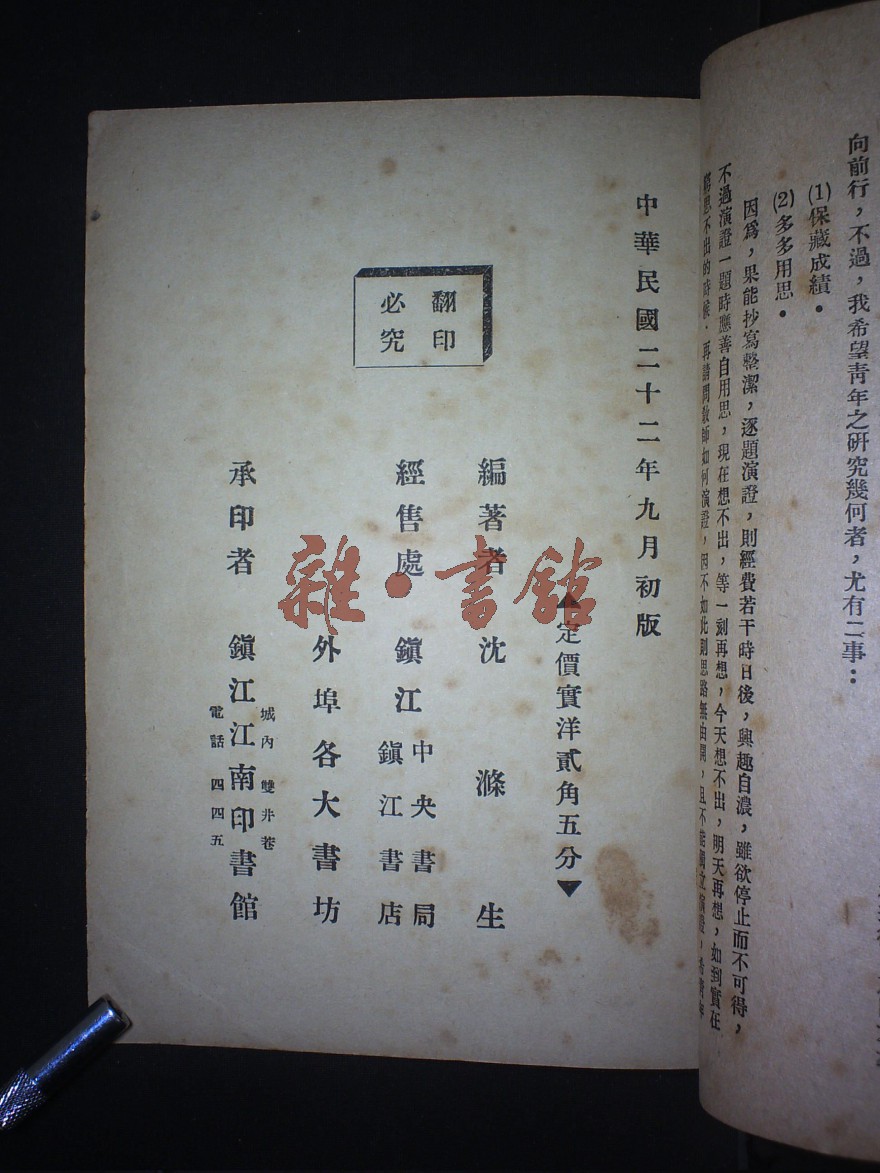 向前行，不過，我希望靑年之研究幾何者，尤有二事：
(1)保藏成績．
(2)多多用思．
因爲，果能抄寫整潔，逐題演證，則經費若干時日後，興趣自濃，雖欲停止而不可得，
不過演證一題時應善自用思，現在想不出，等一刻再想，今天想不出，明天再想，如到實在
窮思不出的時候，再請問敎師如何演證，因不如此則思路無由開，且不能獨立演證，
中華民國二十二年九月初版
▲定價實洋貳角五分▼
翻印
必究
編著者 沈滌生
經售處 鎭江 中央書局
鎭江書店
外埠各大書坊
承印者 鎭江江南印書館
城內雙井巷
電話 四四五
雜·書館